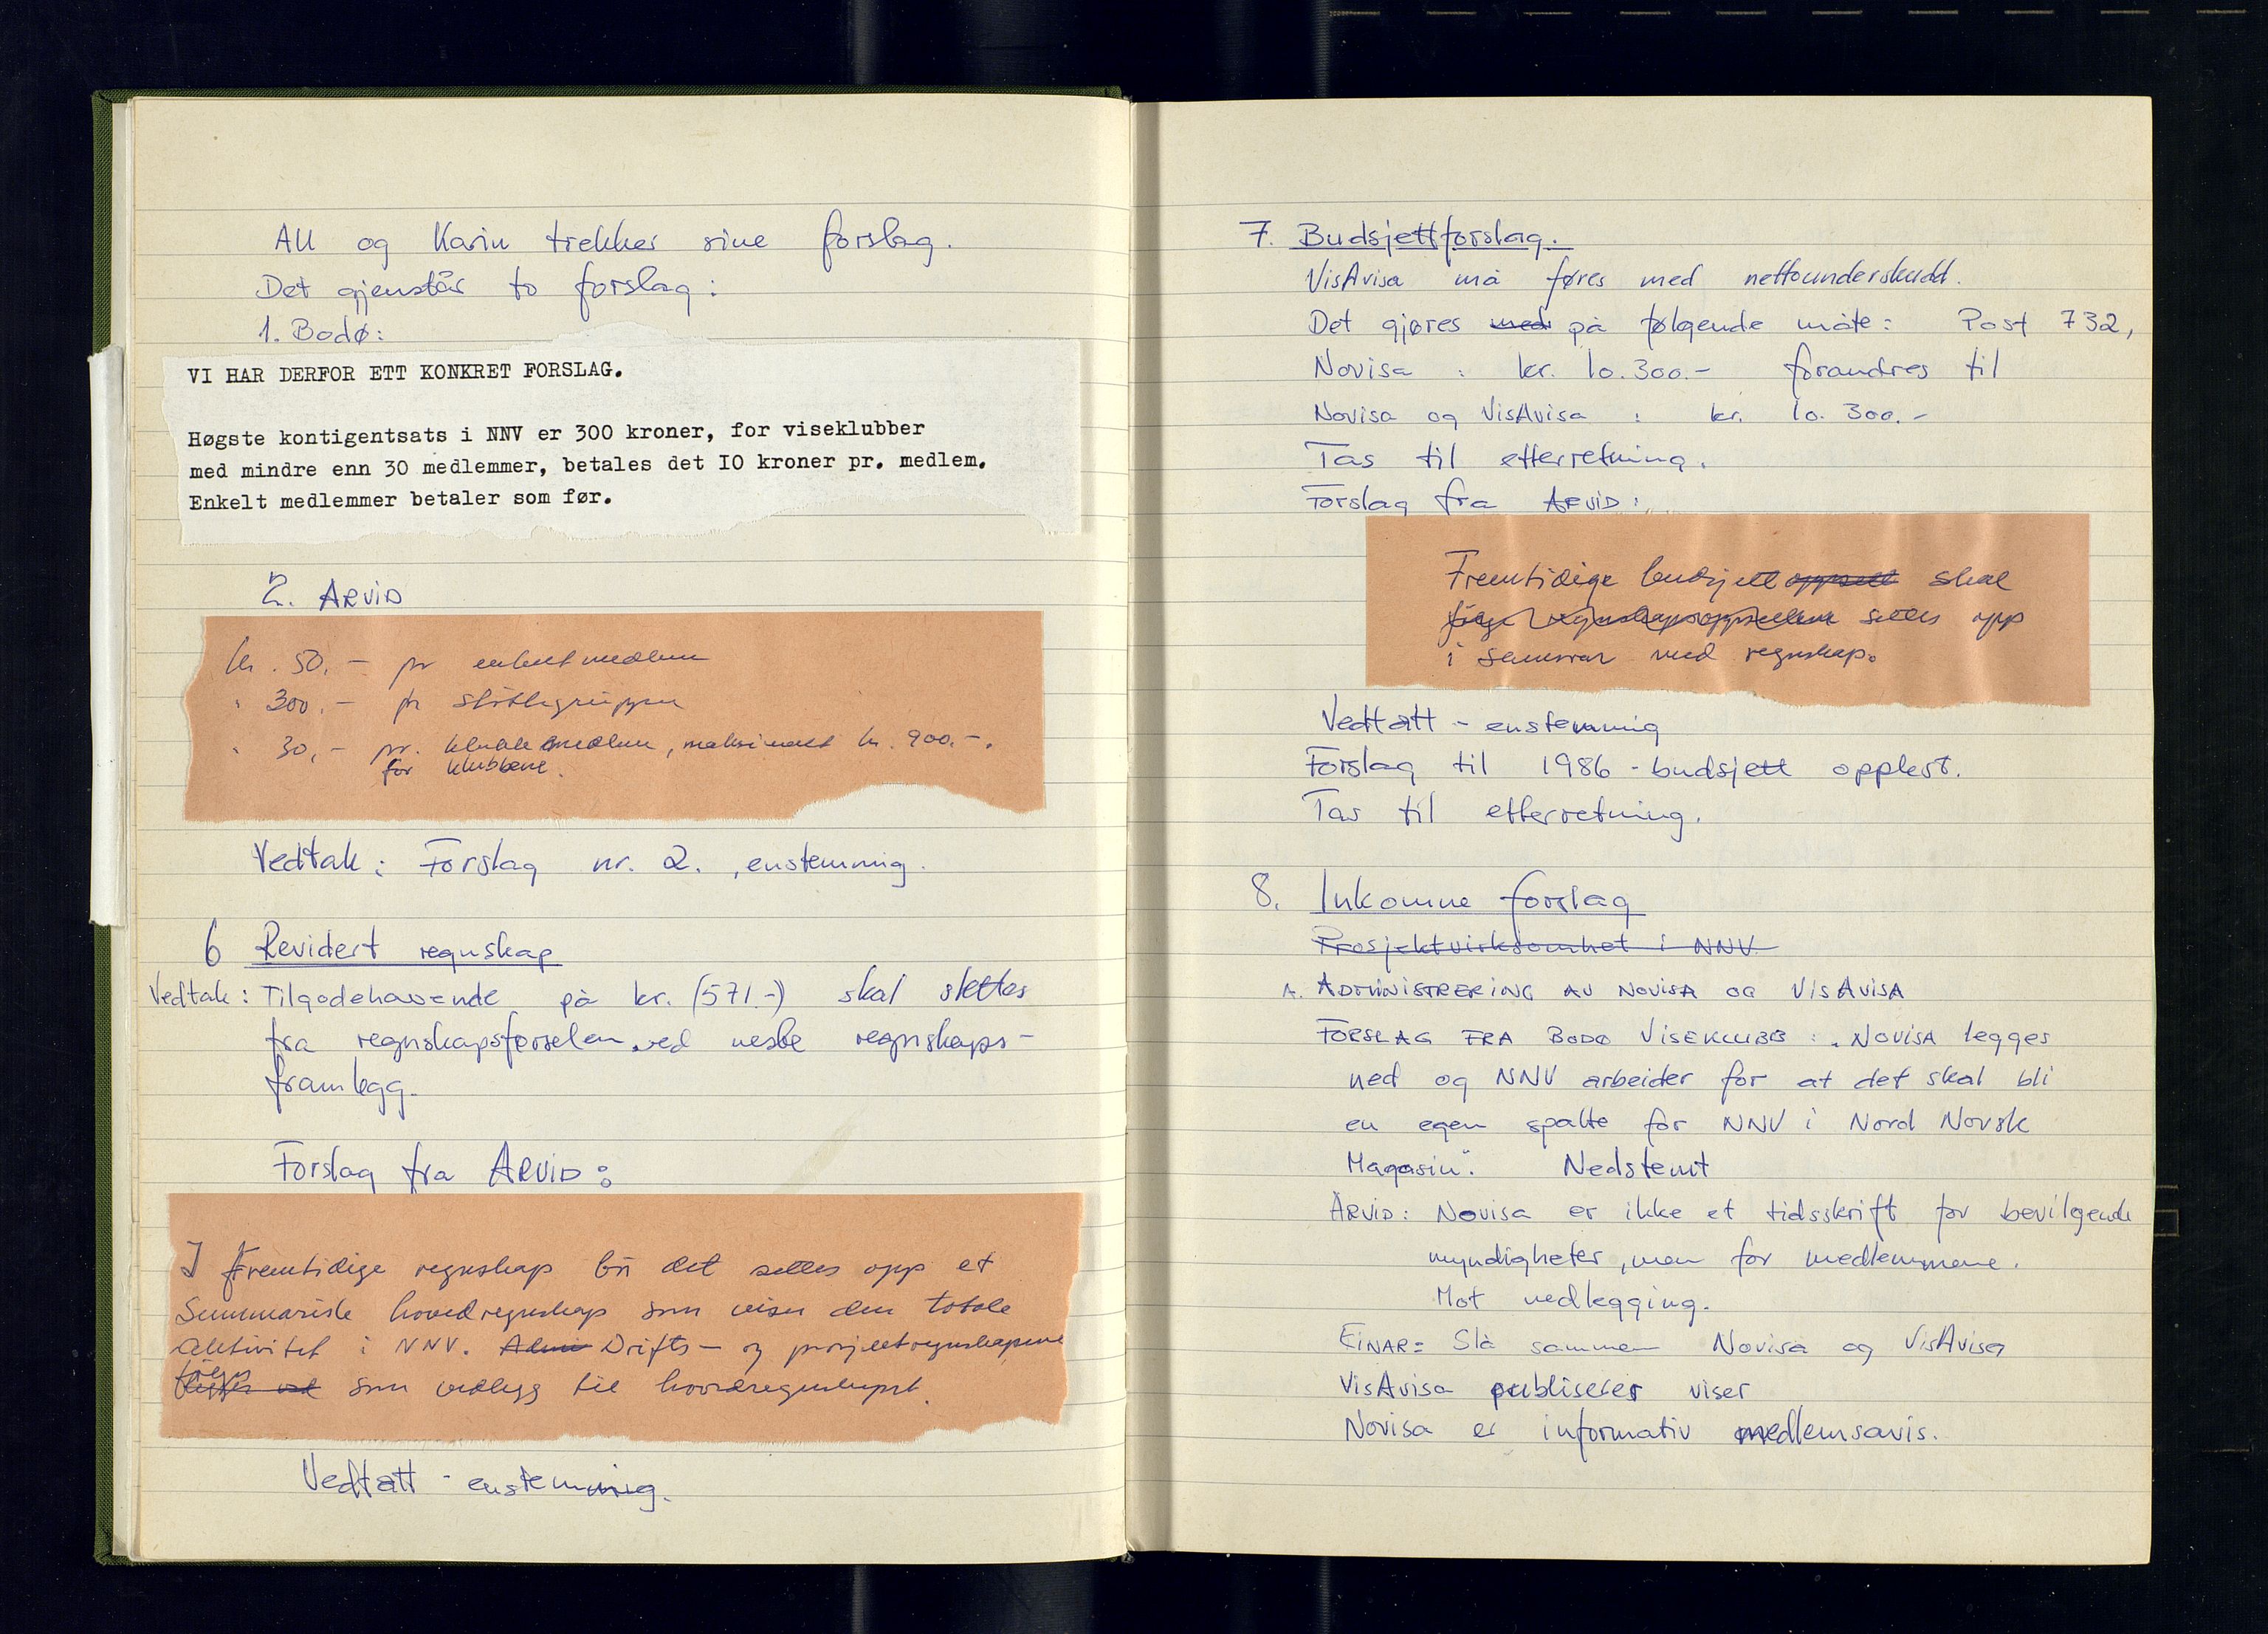 All og Karin trekker sine forslag.
Det gjenstår to forslag:
1. Bodø:
VI HAR DERFOR ETT KONKRET FORSLAG.
Høgste kontigentsats i NNV er 300 kroner, for viseklubber
med mindre enn 30 medlemmer, betales det IO kroner pr. medlem.
Enkelt medlemmer betaler som før.
2. ARVID
kr. 50,- pr enkeltmedlem
" 300,- pr støttegruppe
" 30,- pr. klubbmedlem, maksimalt kr. 900.-.
for klubbene.
Vedtak: Forslag nr. 2., enstemmig.
6 Revidert regnskap
Vedtak: Tilgodehavende på kr. (571.-) skal slettes
fra regnskapsførselen ved neste regnskaps-
framlegg.
Forslag fra ARVID:
I fremtidige regnskap bør det settes opp et
Summarisk hovedregnskap som viser den totale
aktivitet i NNV. Drifts- og prosjektregnskapene
følger som vedlegg til hovedregnskapet.
Vedtatt - enstemmig.
7. Budsjettforslag.
VisAvisa må føres med nettounderskudd.
Det gjøres med på følgende måte: Post 732,
Novisa : kr. 10.300.- forandres til
Novisa og VisAvisa : kr. 10.300.-
Tas til etterretning.
Forslag fra ARVID:
Fremtidige budsjett oppsett skal
følge regnskapsoppsettene settes opp
i samsvar med regnskap.
Vedtatt - enstemmig
Forslag til 1986-budsjett opplest.
Tas til etterretning.
8. Inkomne forslag
Prosjektvirksomhet i NNV
A. ADMINISTRERING AV NOVISA OG VISAVISA
FORSLAG FRA BODØ VISEKLUBB: "NOVISA legges
ned og NNV arbeider for at det skal bli
en egen spalte for NNV i Nord Norsk
Magasin". Nedstemt
ARVID: Novisa er ikke et tidsskrift for bevilgende
myndigheter, men for medlemmene.
Mot nedlegging.
EINAR: Slå sammen Novisa og VisAvisa
VisAvisa publiserer viser
Novisa er informativ medlemsavis.